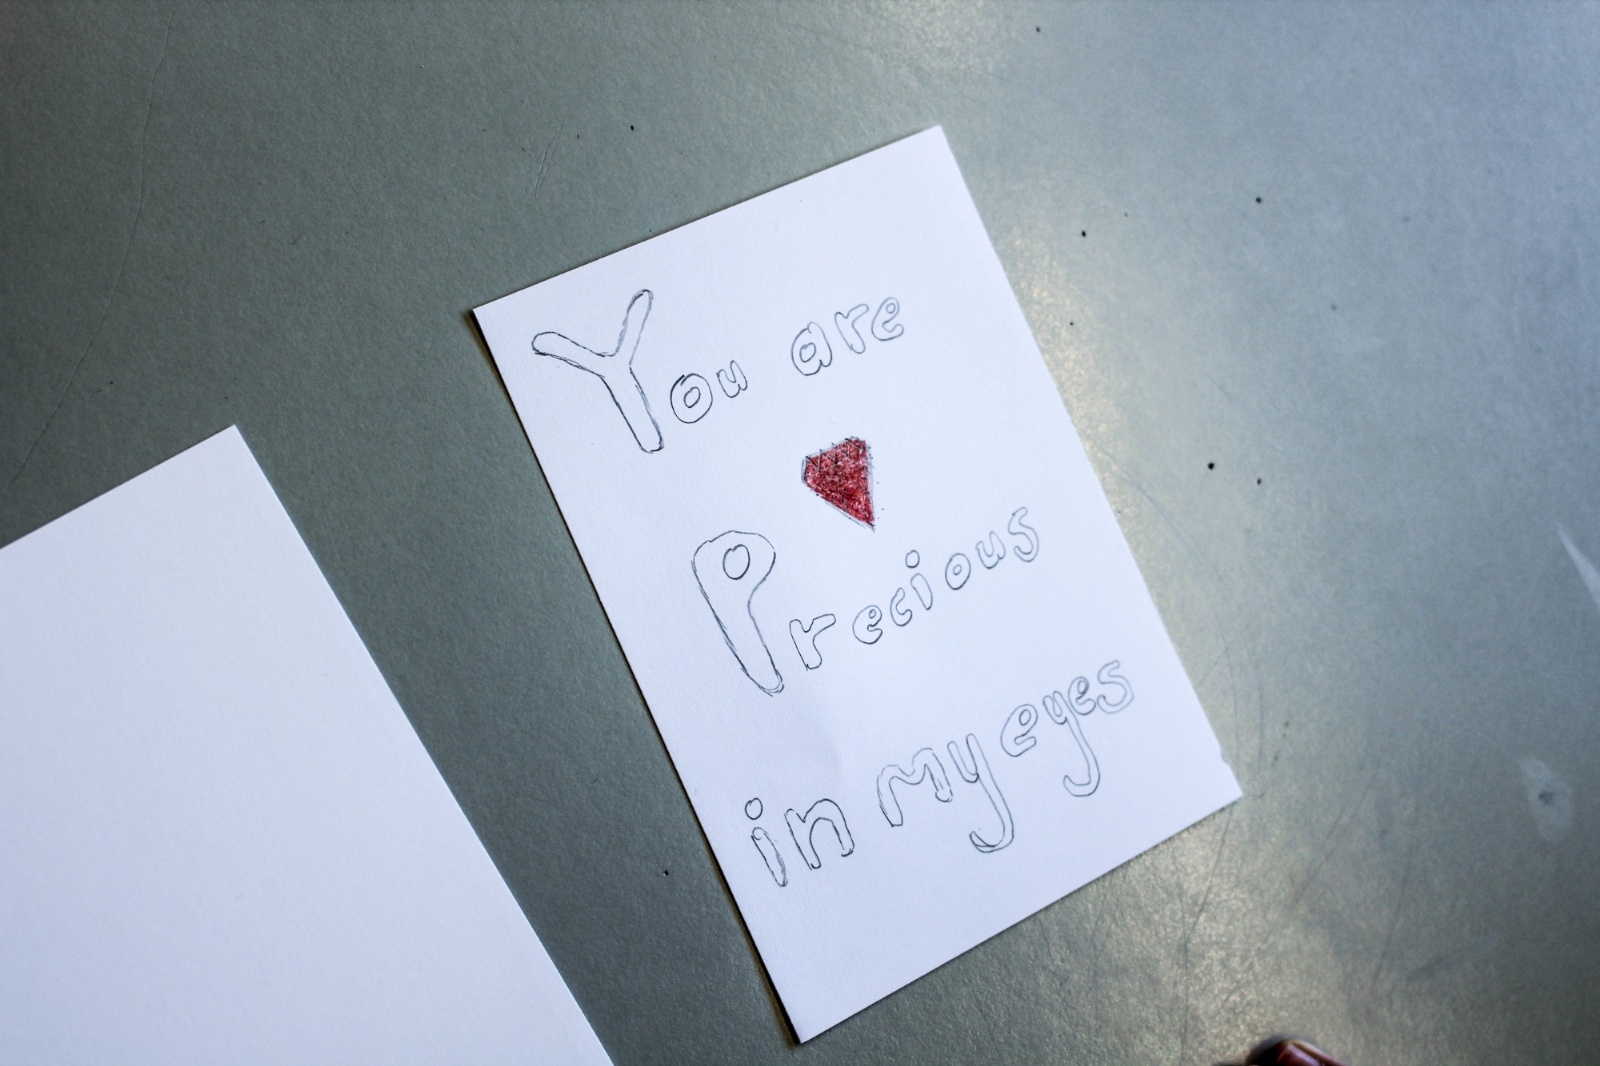 You are
Precious
in my eyes